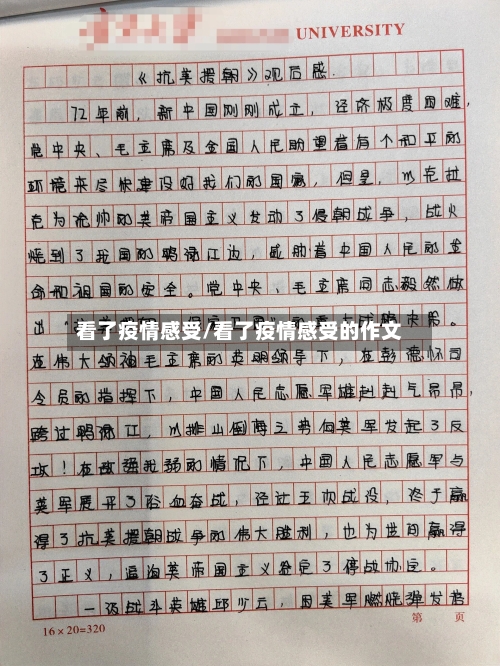 UNIVERSITY
《抗美援朝》观后感.
72年前，新中国刚刚成立，经济极度困难，
党中央、毛主席及全国人民盼望着有个和平的
环境来尽快建设好我们的国家，但是，以克拉
克为统帅的美帝国主义发动了侵朝战争，战火
烧到了我国的鸭渌江边，威胁着中国人民的生
命和祖国的安全。党中央、毛主席同志毅然做
出
看了疫情感受/看了疫情感受的作文
在伟大领袖毛主席的英明领导下，在彭德怀司
令员的指挥下，中国人民志愿军雄赳赳气昂昂，
跨过鸭渌江，以排山倒海之势向美军发起了反
攻！在敌强我弱的情况下，中国人民志愿军与
美军展开了浴血奋战，经过五次战役，终于赢
得了抗美援朝战争的伟大胜利，也为世间赢得
了正义，逼迫美帝国主义签定了停战协定。
一级战斗英雄邱少云，因美军燃烧弹发着
16×20=320
第 页